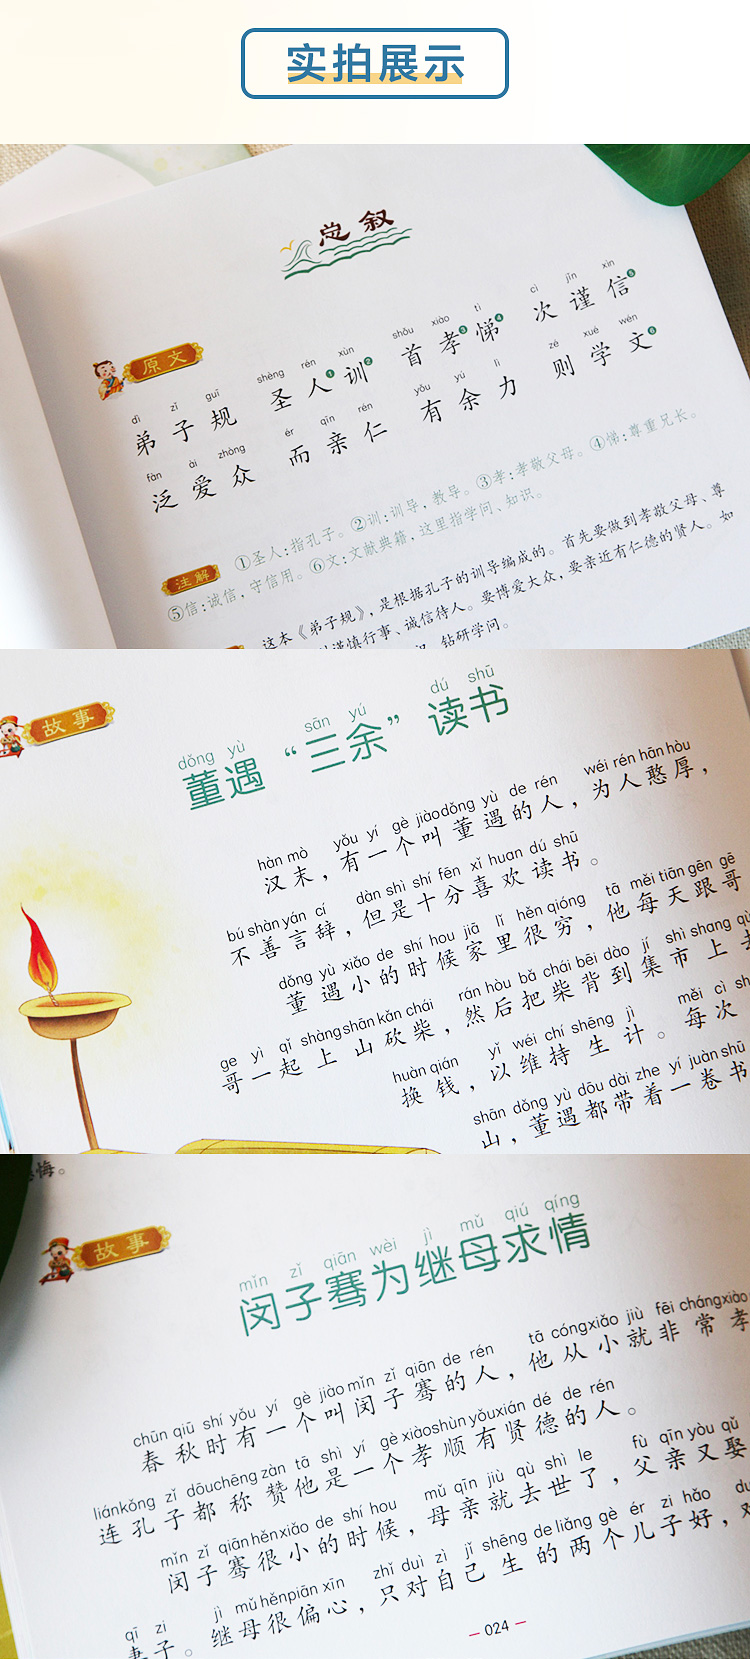 实拍展示
总叙
原文
dì zǐ guī shèng rén xùn shǒu xiào tì cì jǐn xìn
弟子规 圣人❶训❷ 首孝❸悌❹ 次谨信❺
fàn ài zhòng ér qīn rén yǒu yú lì zé xué wén
泛爱众 而亲仁 有余力 则学文❻
注解
①圣人:指孔子。②训:训导,教导。③孝:孝敬父母。④悌:尊重兄长。
⑤信:诚信,守信用。⑥文:文献典籍,这里指学问、知识。
这本《弟子规》,是根据孔子的训导编成的。首先要做到孝敬父母、尊
谨慎行事、诚信待人。要博爱大众,要亲近有仁德的贤人。如
钻研学问。
故事
dǒng yù sān yú dú shū
董遇“三余”读书
hàn mò yǒu yí gè jiào dǒng yù de rén wéi rén hān hòu
汉末,有一个叫董遇的人,为人憨厚,
bú shàn yán cí dàn shì shí fēn xǐ huan dú shū
不善言辞,但是十分喜欢读书。
dǒng yù xiǎo de shí hou jiā lǐ hěn qióng tā měi tiān gēn gē
董遇小的时候家里很穷,他每天跟哥
ge yì qǐ shàng shān kǎn chái rán hòu bǎ chái bēi dào jí shì shang
哥一起上山砍柴,然后把柴背到集市上去
huàn qián yǐ wéi chí shēng jì měi cì
换钱,以维持生计。每次
shān dǒng yù dōu dài zhe yí juàn shū
山,董遇都带着一卷书
悔。
故事
mǐn zǐ qiān wèi jì mǔ qiú qíng
闵子骞为继母求情
chūn qiū shí yǒu yí gè jiào mǐn zǐ qiān de rén tā cóng xiǎo jiù fēi cháng xiào
春秋时有一个叫闵子骞的人,他从小就非常孝
lián kǒng zǐ dōu chēng zàn tā shì yí gè xiào shùn yǒu xián dé de rén
连孔子都称赞他是一个孝顺有贤德的人。
mǐn zǐ qiān hěn xiǎo de shí hou mǔ qīn jiù qù shì le fù qīn yòu qǔ
闵子骞很小的时候,母亲就去世了,父亲又娶
qī zi jì mǔ hěn piān xīn zhǐ duì zì jǐ shēng de liǎng gè ér zi hǎo
妻子。继母很偏心,只对自己生的两个儿子好,对
024